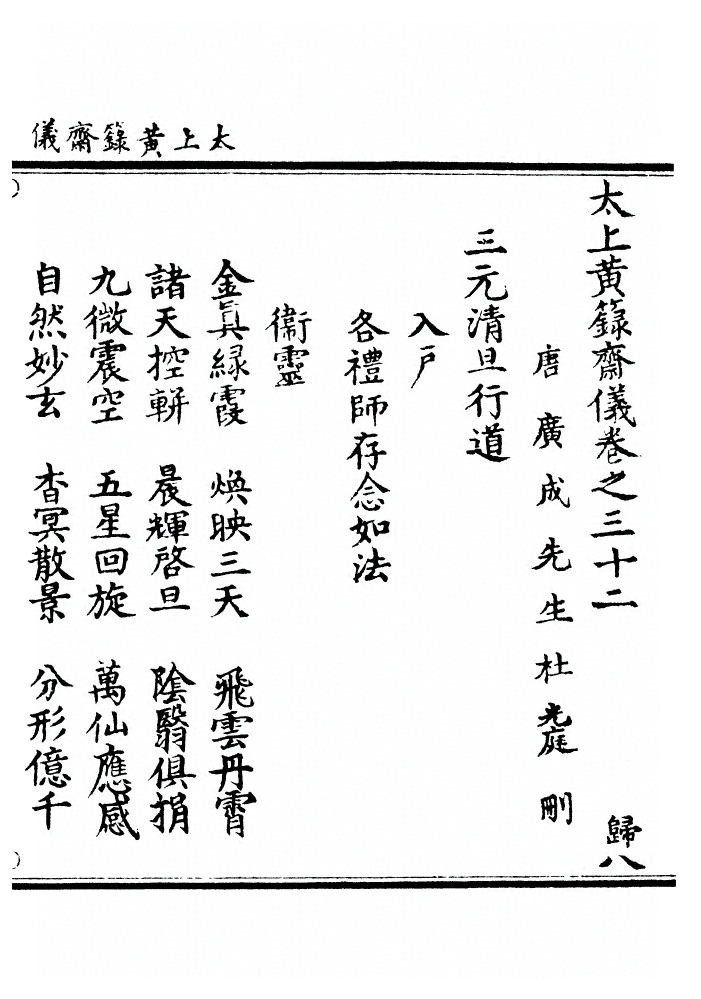 太上黃籙齋儀
太上黃籙齋儀卷之三十二
歸八
唐廣成先生杜光庭刪
三元清旦行道
入戶
各禮師存念如法
衞靈
金眞緑霞 煥映三天 飛雲丹霄
諸天控軿 晨輝啓旦 陰翳俱捐
九微震空 五星回旋 萬仙應感
自然妙玄 杳冥散景 分形億千